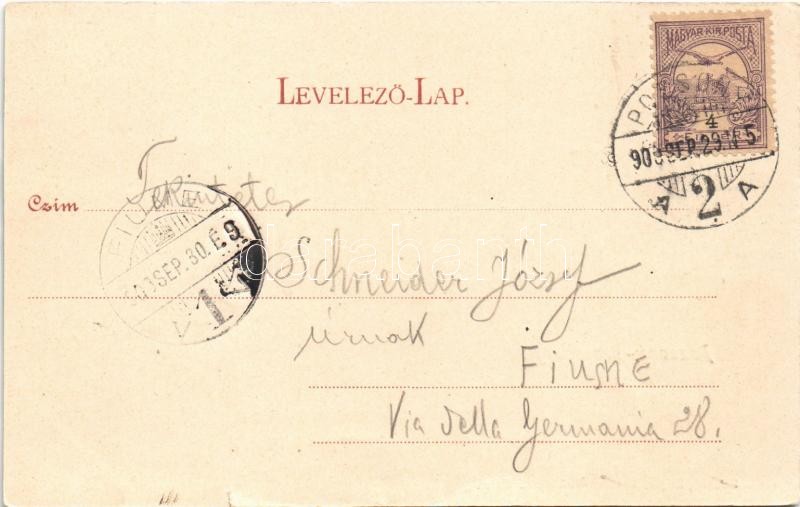 MAGYAR KIR. POSTA
LEVELEZŐ-LAP.
POZSONY
4
903 SEP. 29 N 5
A 2 A
Czim
Tekintetes
FIUME
903 SEP. 30. É 9
V 1
darabanth
Schneider József
úrnak
FIUME
Via della Germania 28.